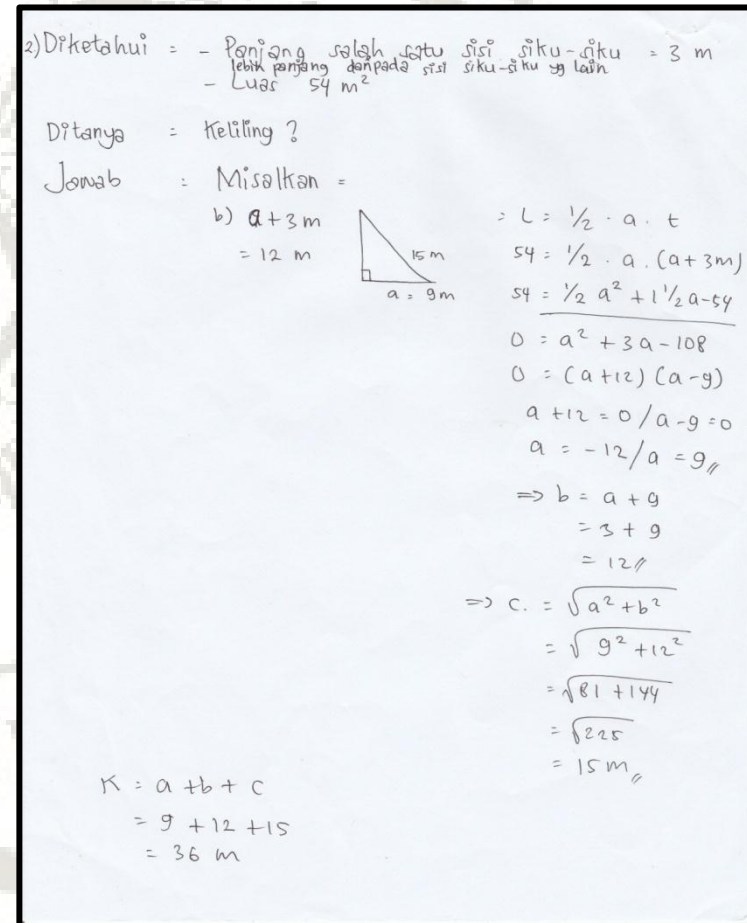 2) Diketahui = - Panjang salah satu sisi siku-siku = 3 m
lebih panjang daripada sisi siku-siku yg lain
- Luas 54 m²
Ditanya = Keliling ?
Jawab : Misalkan =
b) a + 3 m
= 12 m
15 m
a = 9 m
: L = 1/2 . a . t
54 = 1/2 . a . (a + 3m)
54 = 1/2 a² + 1 1/2 a - 54
0 = a² + 3a - 108
0 = (a + 12) (a - 9)
a + 12 = 0 / a - 9 = 0
a = -12 / a = 9 //
=> b = a + 9
= 3 + 9
= 12 //
=> c. = √a² + b²
= √ 9² + 12²
= √81 + 144
= √225
= 15 m //
K = a + b + c
= 9 + 12 + 15
= 36 m